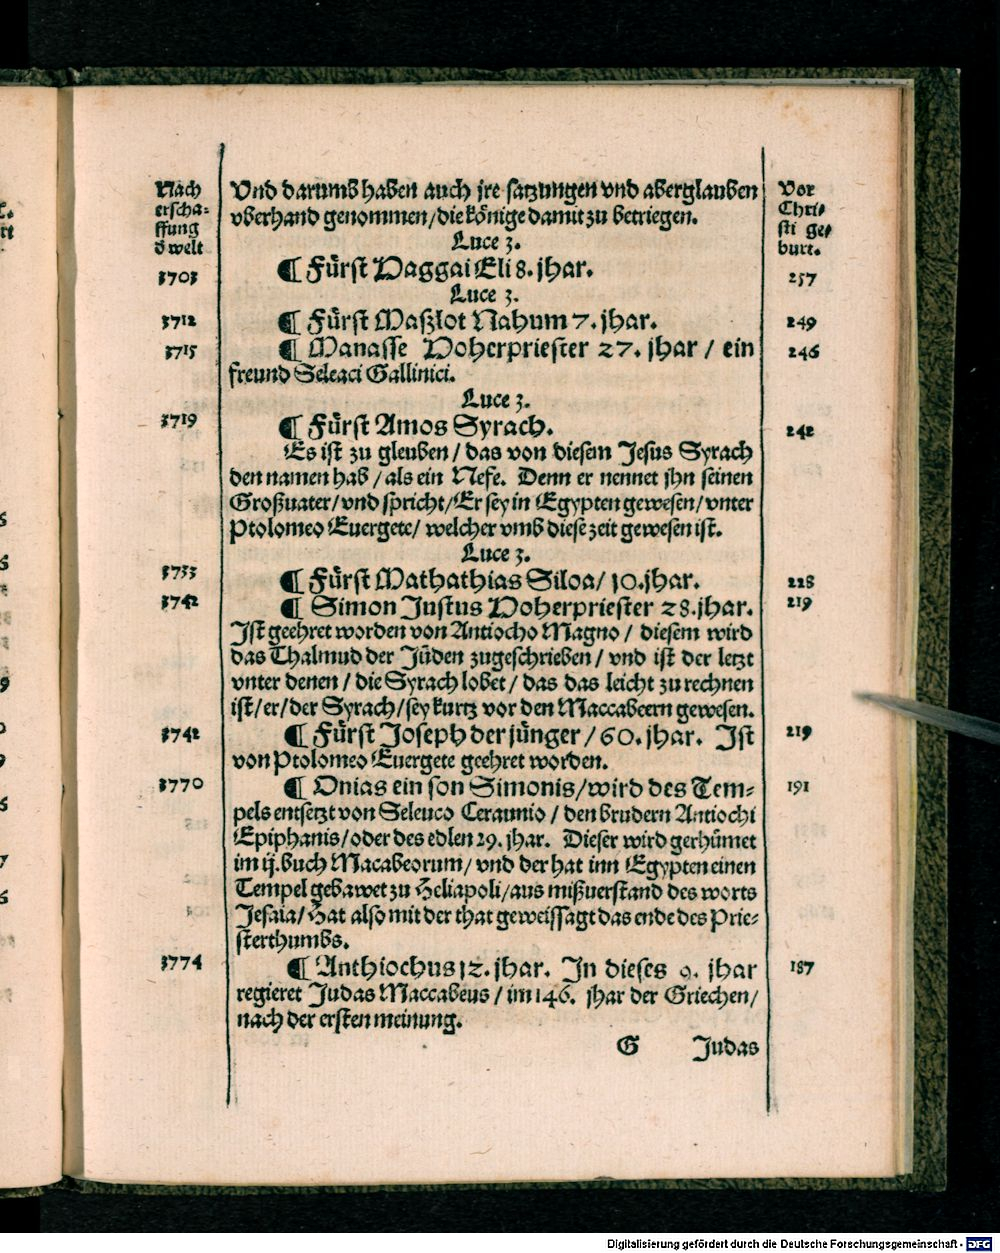 Nach
erscha-
ffung
d welt
Vor
Chri-
sti ge-
burt.
Vnd darumb haben auch jre satzungen vnd aberglauben
vberhand genommen/die könige damit zu betriegen.
Luce 3.
3703 ¶ Fürst Naggai Eli 8. jhar. 257
Luce 3.
3712 ¶ Fürst Maszlot Nahum 7. jhar. 249
3715 ¶ Manasse Hoherpriester 27. jhar / ein 246
freund Seleaci Gallinici.
Luce 3.
3719 ¶ Fürst Amos Syrach. 242
Es ist zu gleuben / das von diesem Jesus Syrach
den namen hab / als ein Nefe. Denn er nennet jhn seinen
Großuater/vnd spricht/Er sey in Egypten gewesen/vnter
Ptolomeo Euergete/ welcher vmb diese zeit gewesen ist.
Luce 3.
3733 ¶ Fürst Mathathias Siloa/ 10.jhar. 228
3742 ¶ Simon Justus Hoherpriester 28.jhar. 219
Jst geehret worden von Antiocho Magno / diesem wird
das Thalmud der Jüden zugeschrieben / vnd ist der letzt
vnter denen / die Syrach lobet / das das leicht zu rechnen
ist/er/der Syrach/sey kurtz vor den Maccabeern gewesen.
3742 ¶ Fürst Joseph der jünger / 60. jhar. Ist 219
von Ptolomeo Euergete geehret worden.
3770 ¶ Onias ein son Simonis/wird des Tem- 191
pels entsetzt von Seleuco Ceraunio / den brudern Antiochi
Epiphanis/oder des edlen 29. jhar. Dieser wird gerhümet
im ij.buch Macabeorum/ vnd der hat inn Egypten einen
Tempel gebawet zu Heliapoli/aus mißuerstand des worts
Jesaia/Hat also mit der that geweissagt das ende des Prie-
sterthumbs.
3774 ¶ Anthiochus 12. jhar. In dieses 9. jhar 187
regieret Judas Maccabeus / im 146. jhar der Griechen/
nach der ersten meinung.
G Judas
Digitalisierung gefördert durch die Deutsche Forschungsgemeinschaft - DFG